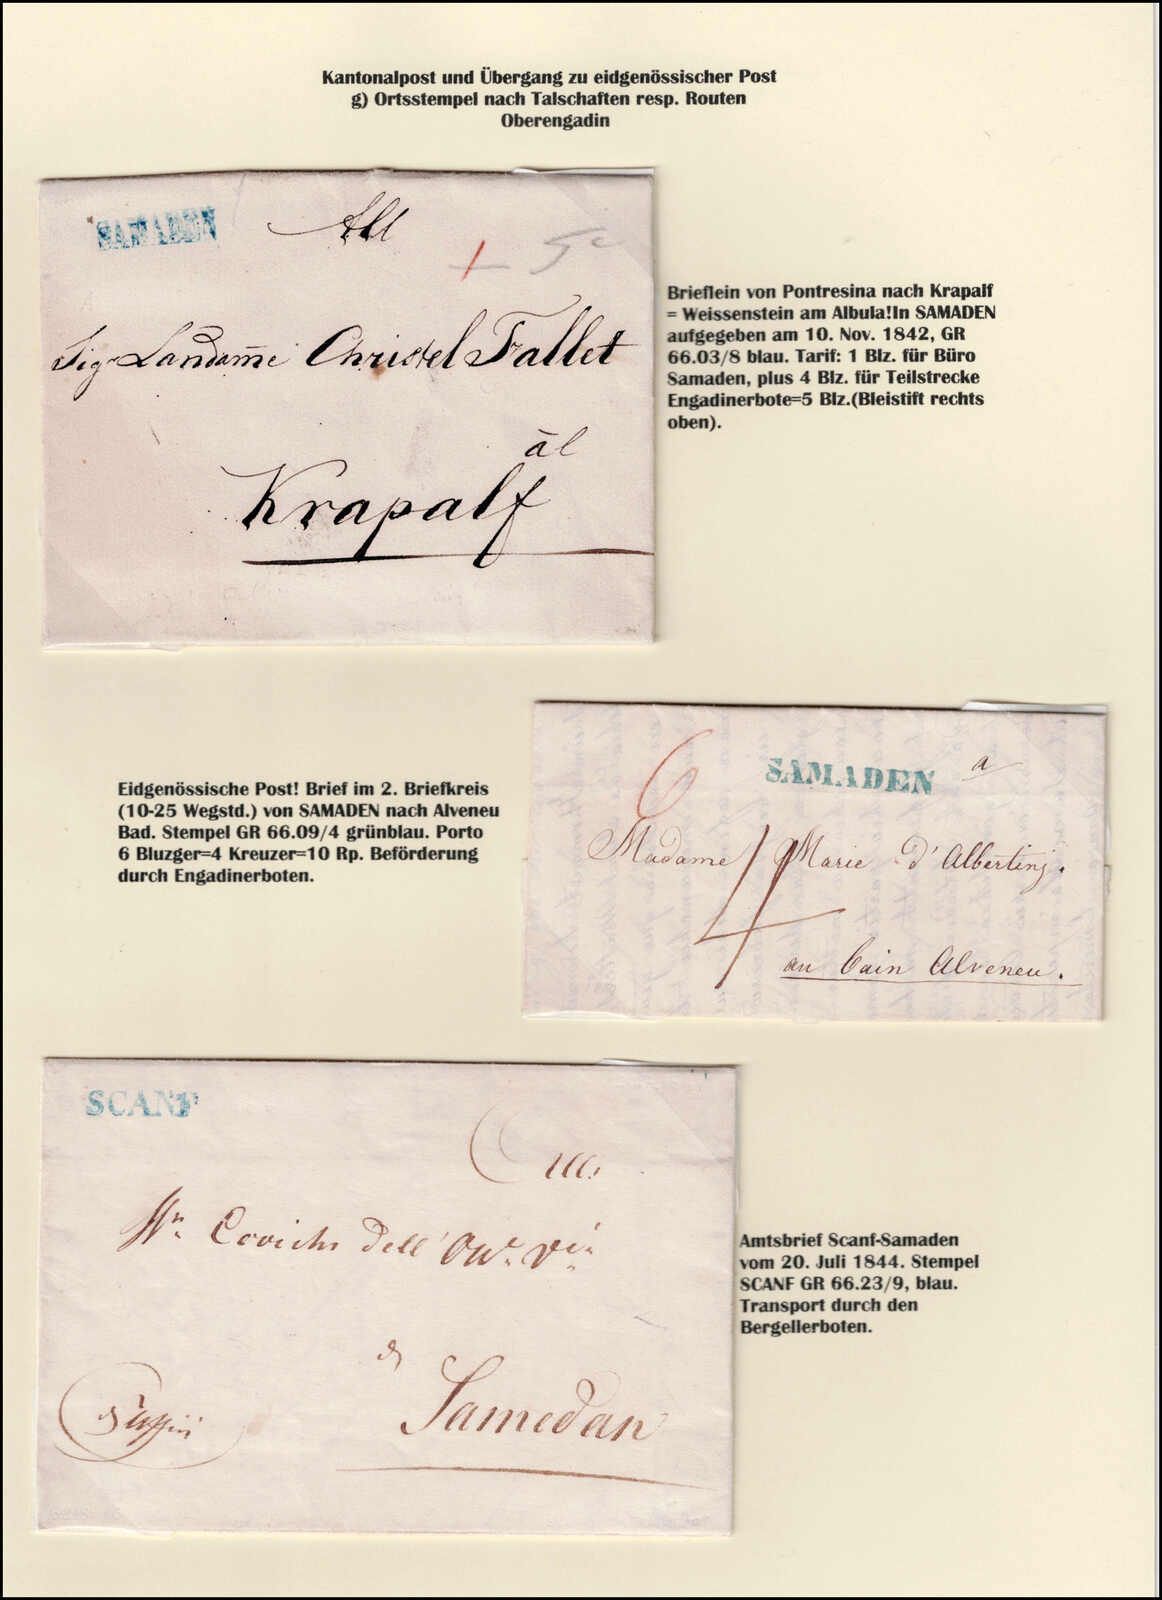 Kantonalpost und Übergang zu eidgenössischer Post
g) Ortsstempel nach Talschaften resp. Routen
Oberengadin
SAMADEN
All
5
Sigr Landame Christel Fallet
àl
Krapalf
Brieflein von Pontresina nach Krapalf
= Weissenstein am Albula!In SAMADEN
aufgegeben am 10. Nov. 1842, GR
66.03/8 blau. Tarif: 1 Blz. für Büro
Samaden, plus 4 Blz. für Teilstrecke
Engadinerbote=5 Blz.(Bleistift rechts
oben).
Eidgenössische Post! Brief im 2. Briefkreis
(10-25 Wegstd.) von SAMADEN nach Alveneu
Bad. Stempel GR 66.09/4 grünblau. Porto
6 Bluzger=4 Kreuzer=10 Rp. Beförderung
durch Engadinerboten.
6
SAMADEN
a
Madame Marie d'Albertinj.
4
au bain Alveneu.
SCANF
dell'
Samedan
Amtsbrief Scanf-Samaden
vom 20. Juli 1844. Stempel
SCANF GR 66.23/9, blau.
Transport durch den
Bergellerboten.